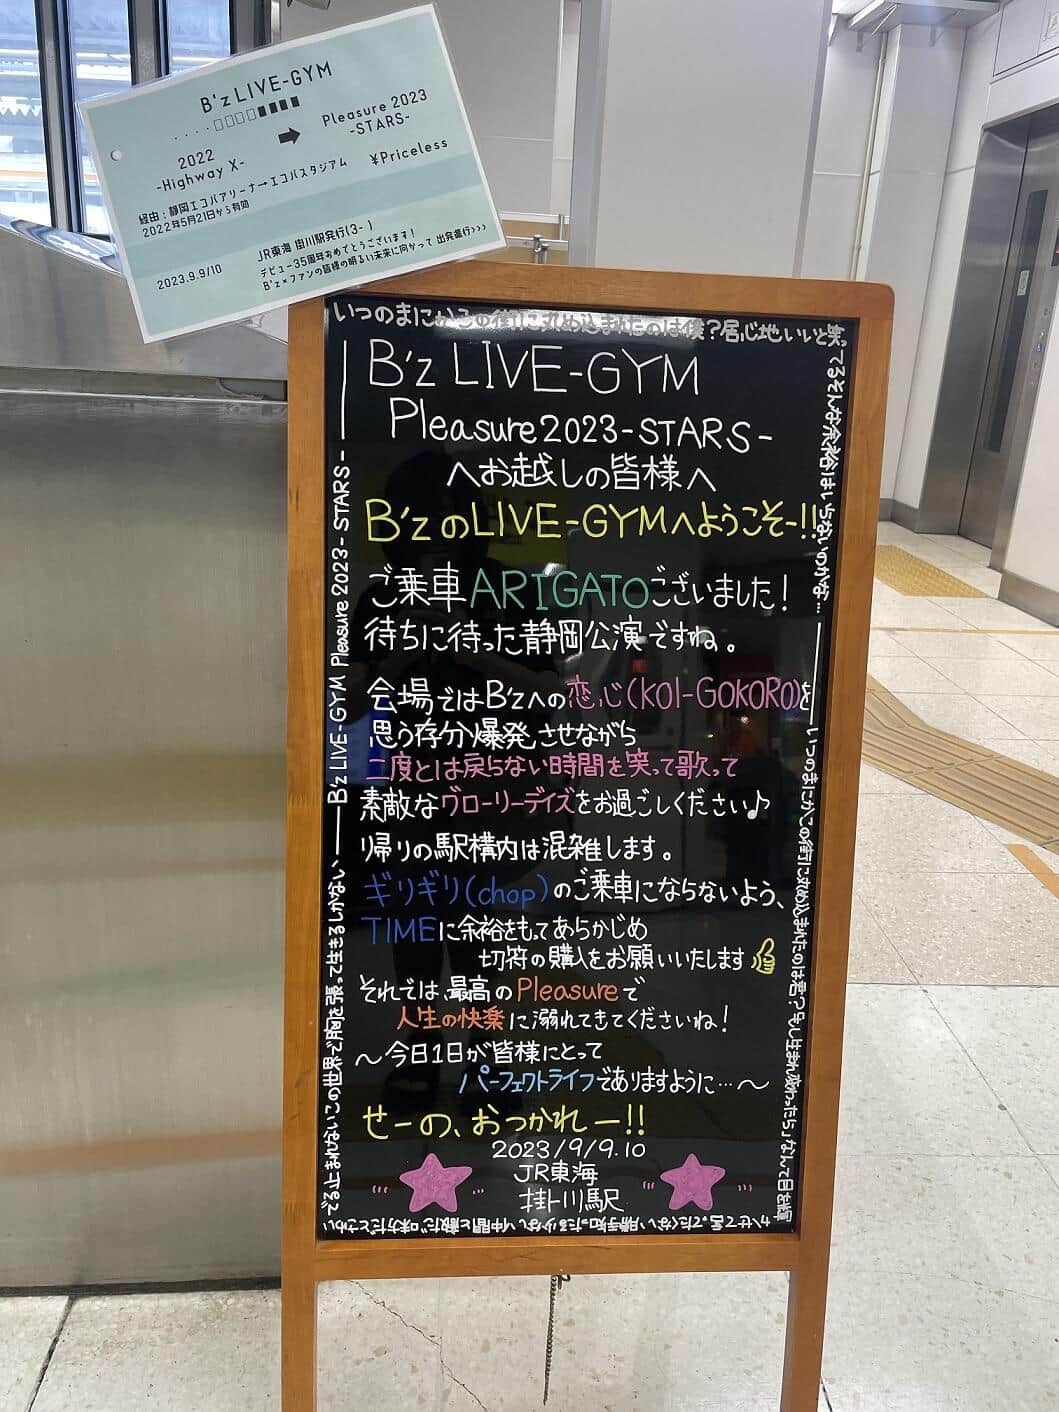 B'z LIVE-GYM
2022
-Highway X-
Pleasure 2023
-STARS-
経由：静岡エコパアリーナ→エコパスタジアム
¥Priceless
2022年5月21日から有効
2023.9.9/10
JR東海 掛川駅発行(3- )
デビュー35周年おめでとうございます！
B'z×ファンの皆様の明るい未来に向かって 出発進行>>>
いつのまにかこの街に丸め込まれたのは僕？居心地いいと笑っ
てるそんな余裕はいらないのかな…
B'z LIVE-GYM
Pleasure2023-STARS-
へお越しの皆様へ
B'zのLIVE-GYMへようこそー!!
ご乗車ARIGATOございました！
待ちに待った静岡公演ですね。
会場ではB'zへの恋心(KOI-GOKORO)を
思う存分爆発させながら
二度とは戻らない時間を笑って歌って
素敵なグローリーデイズをお過ごしください♪
帰りの駅構内は混雑します。
ギリギリ(chop)のご乗車にならないよう、
TIMEに余裕をもってあらかじめ
切符の購入をお願いいたします
それでは、最高のPleasureで
人生の快楽に溺れてきてくださいね！
～今日1日が皆様にとって
パーフェクトライフでありますように…～
せーの、おつかれー!!
2023/9/9.10
JR東海
掛川駅
いつのまにかこの街に丸め込まれたのは君？「もし生まれ変わったら」なんて目を輝
かせて言ってたくない 勝手知ったる少ない仲間と敵だ味方だとさわい
でる止まれないこの世界で胸を張って生きるしかない
B'z LIVE-GYM Pleasure 2023 - STARS -